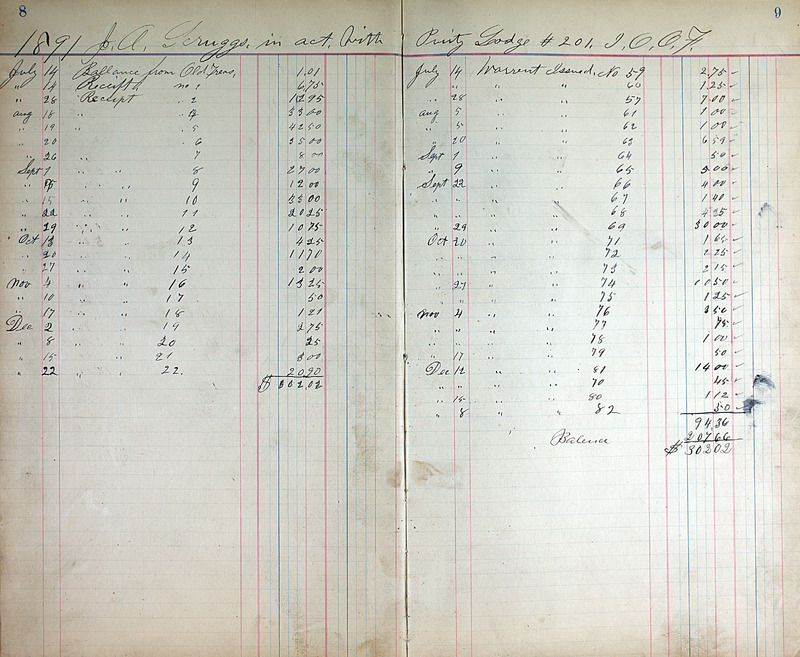 8
1891 J. A. Scruggs. in act. With
July 14 Ballance from Old Treas, 1.01
" 14 Receipt no 1 675
" 28 Receipt " 2 1295
aug 18 " 4 3300
" 19 " 5 4250
" 20 " 6 3500
" 26 " 7 800
Sept 7 " " 8 2700
" " " 9 1200
" 15 " " 10 3300
" 22 " " 11 2025
" 29 " " 12 1075
Oct 13 " " 13 425
" 20 " " 14 1170
" 27 " " 15 200
nov 4 " " 16 1325
" 10 " " 17 50
" 17 " " 18 121
Dec 2 " " 19 275
" 8 " " 20 25
" 15 " 21 300
" 22 " 22. 2090
$ 30202
9
Purity Lodge # 201. I. O. O. F.
July 14 Warrent Issued. No 59 275
" " " " 60 125
" 28 " " 57 700
aug 5 " " 61 100
" 5 " " 62 100
" 20 " " 63 659
Sept 1 " " 64 50
" 9 " " 65 300
Sept 22 " " 66 400
" " " " 67 140
" " " " 68 425
" 29 " " 69 3000
Oct 20 " " 71 165
" " " " 72 225
" " " " 73 215
" 27 " " 74 1050
" " " " 75 125
nov 4 " " 76 350
" " " " 77 75
" " " " 78 100
" 17 " " 79 50
Dec 12 " " 81 1400
" " " " 70 45
" 15 " " 80 112
" 8 " " 82 50
9436
Balence 20766
$ 30202